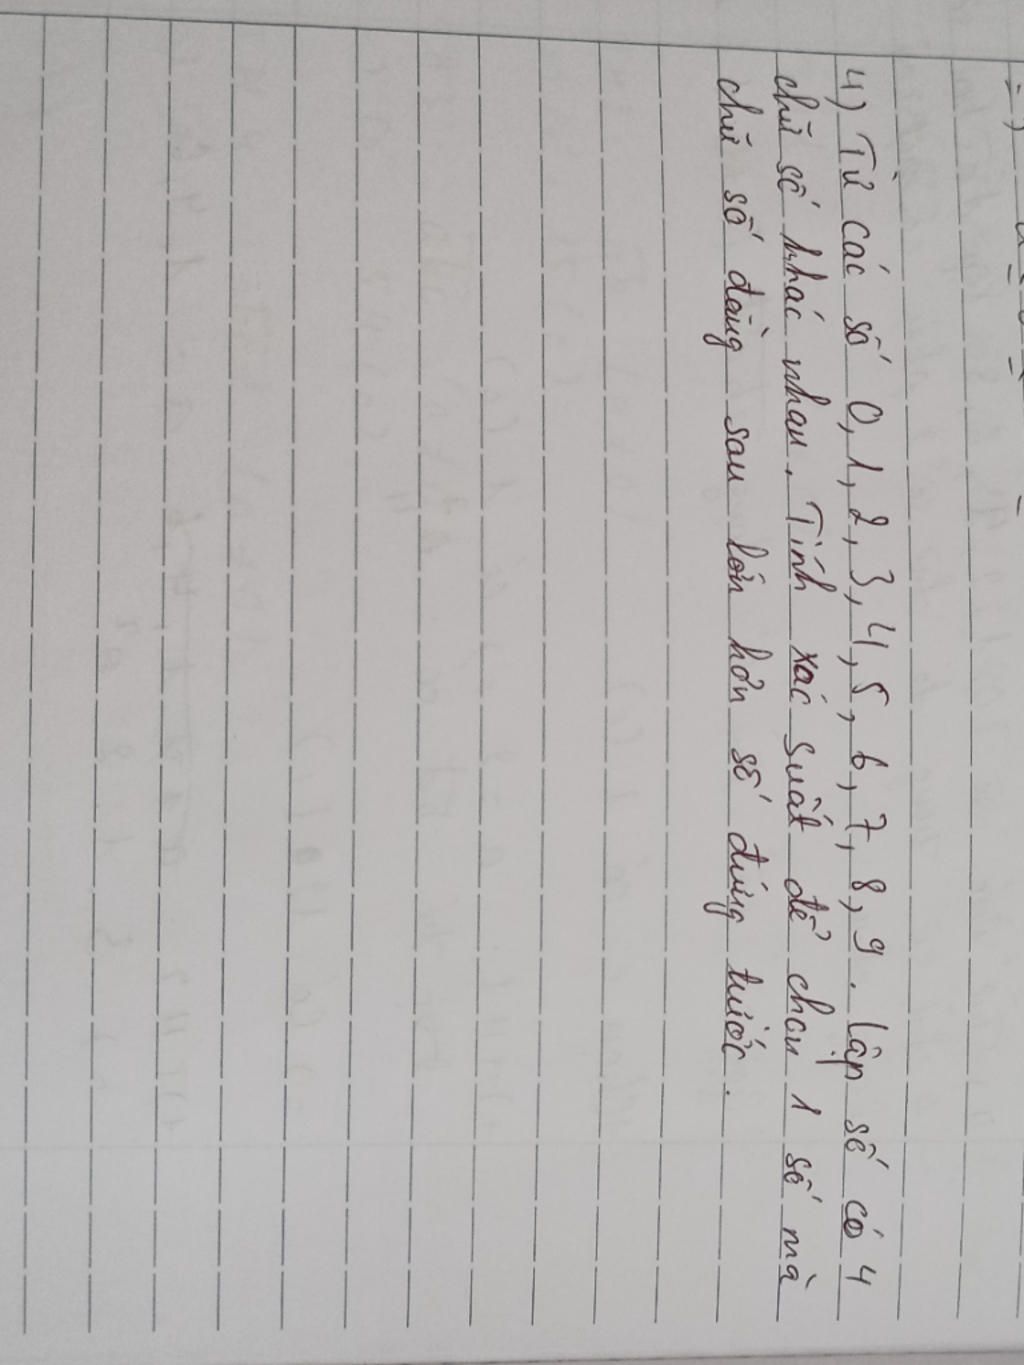 4) Từ các số 0, 1, 2, 3, 4, 5, 6, 7, 8, 9. lập số có 4
chữ số khác nhau. Tính xác suất để chọn 1 số mà
chữ số đằng sau lớn hơn số đứng trước.